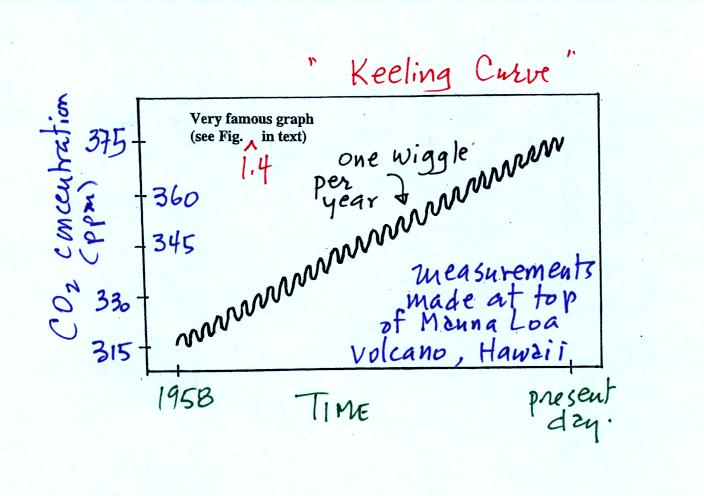 " Keeling Curve "
Very famous graph
(see Fig. ^ in text)
1.4
one wiggle
per
year
CO₂ concentration
(ppm)
375
360
345
330
315
measurements
made at top
of Mauna Loa
Volcano, Hawaii
1958
TIME
present
day.